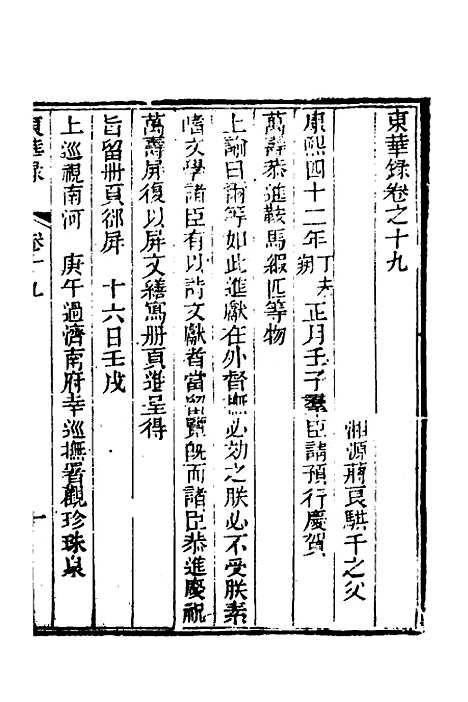 東華錄卷之十九
湘源蔣良騏千之父
康熙四十二年丁未朔正月壬子羣臣請預行慶賀
萬壽恭進鞍馬緞匹等物
上諭曰爾等如此進獻在外督撫必効之朕必不受朕素
嗜文學諸臣有以詩文獻者當留覽旣而諸臣恭進慶祝
萬壽屏復以屏文繕寫册頁進呈得
旨留册頁卻屏　十六日壬戌
上巡視南河　庚午過濟南府幸巡撫署觀珍珠泉
東華錄　卷十九　一